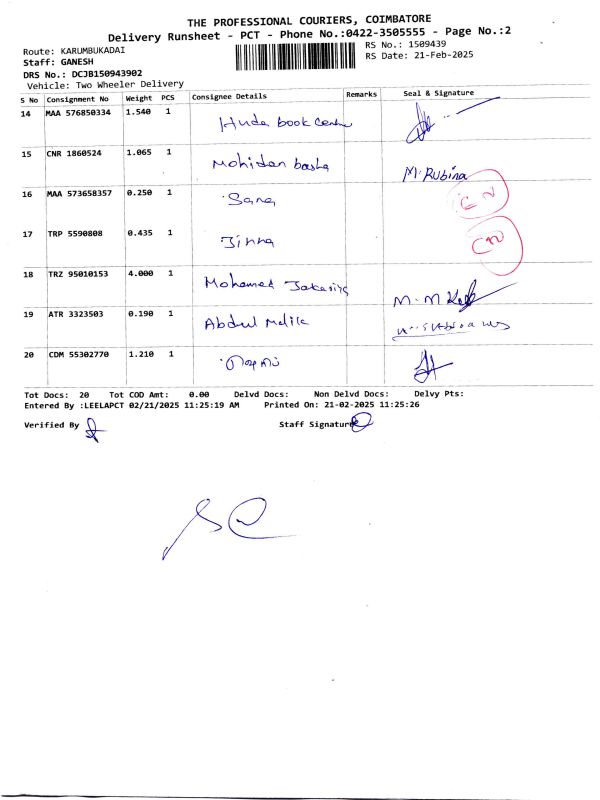 THE PROFESSIONAL COURIERS, COIMBATORE
Delivery Runsheet - PCT - Phone No.:0422-3505555 - Page No.:2
Route: KARUMBUKADAI
RS No.: 1509439
Staff: GANESH
RS Date: 21-Feb-2025
DRS No.: DCJB150943902
Vehicle: Two Wheeler Delivery
S No Consignment No Weight PCS Consignee Details Remarks Seal & Signature
14 MAA 576850334 1.540 1 Huda book Centre
15 CNR 1860524 1.065 1 Mohidan basha M. Rubina
16 MAA 573658357 0.250 1 Sana CN
17 TRP 5590808 0.435 1 Jinna CN
18 TRZ 95010153 4.000 1 Mohamed Jakariya M.M
19 ATR 3323503 0.190 1 Abdul Malik
20 CDM 55302770 1.210 1
Tot Docs: 20 Tot COD Amt: 0.00 Delvd Docs: Non Delvd Docs: Delvy Pts:
Entered By :LEELAPCT 02/21/2025 11:25:19 AM Printed On: 21-02-2025 11:25:26
Verified By Staff Signature